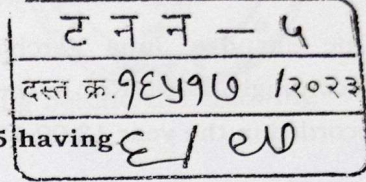 ट न न - ५
दस्त क्र. १६५१७ /२०२३
5 having ६/